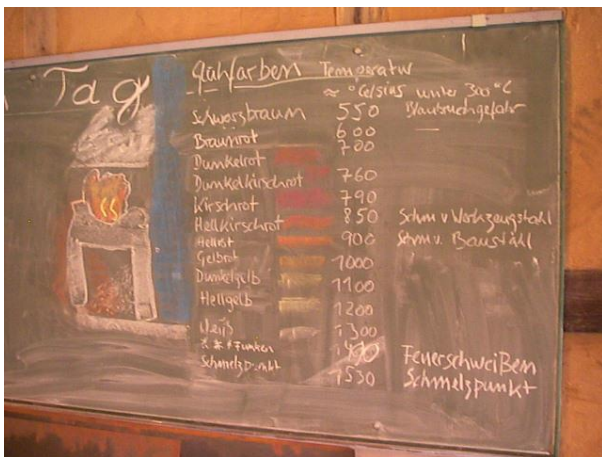 Tag
Glühfarben Temperatur
≈ °Celsius unter 300°C
Schwarzbraun 550 Blaubruchgefahr
Braunrot 600 —
Dunkelrot 700
Dunkelkirschrot 760
Kirschrot 790
Hellkirschrot 850 Schm v Werkzeugstahl
Hellrot 900 Schm v. Baustahl
Gelbrot 1000
Dunkelgelb 1100
Hellgelb 1200
Weiß 1300
* * * Funken Feuerschweißen
Schmelzpunkt 1530 Schmelzpunkt